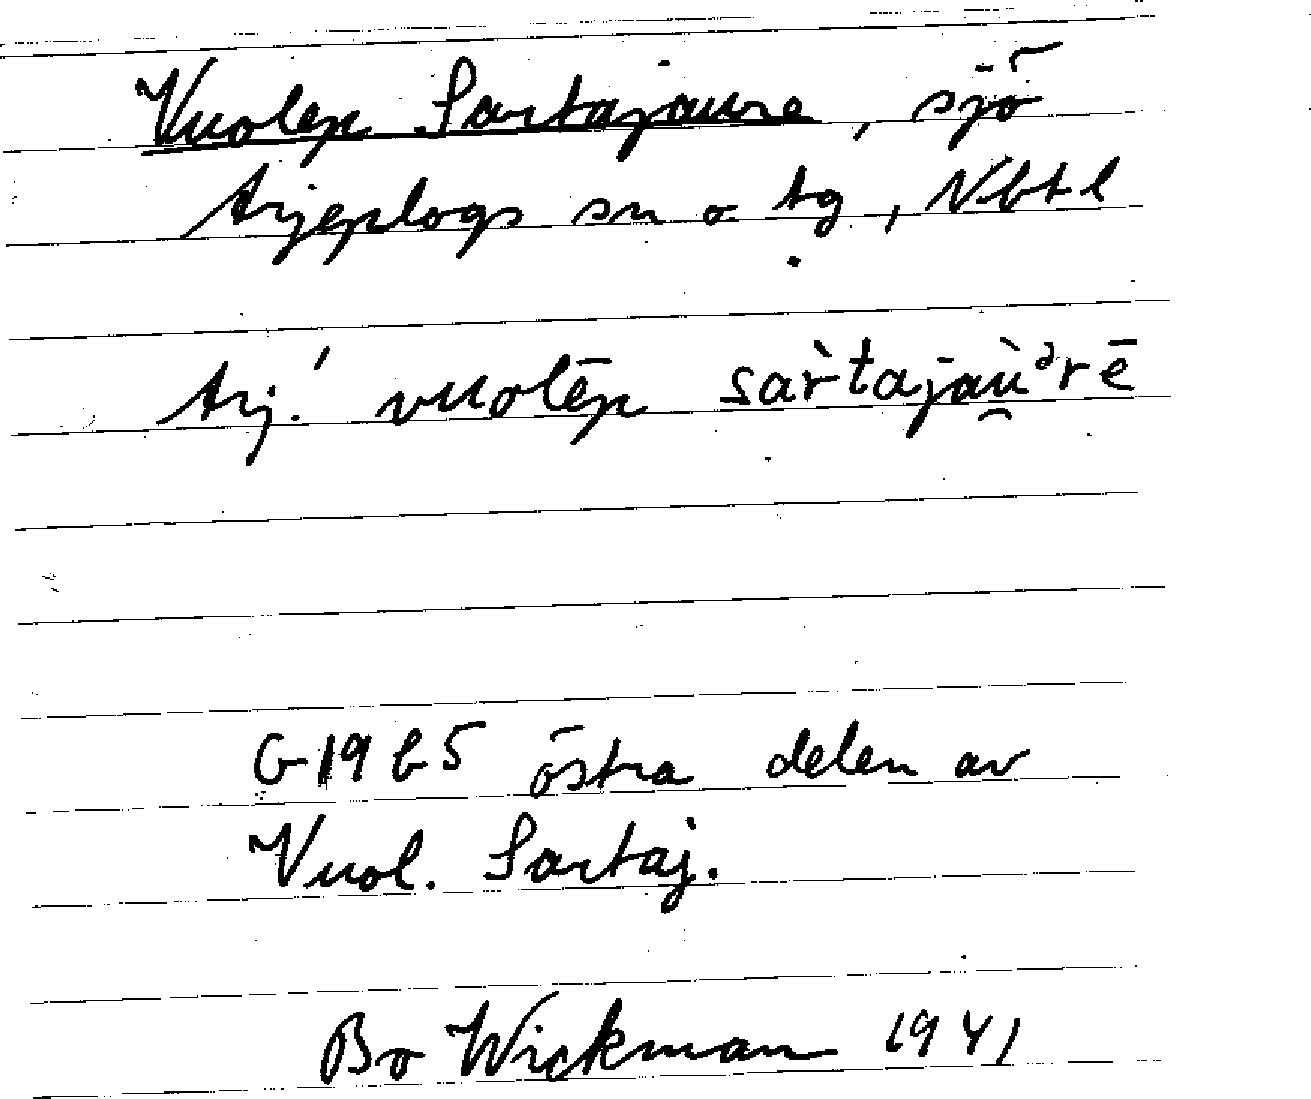 Vuolep Sartajaure, sjö
Arjeplogs sn o tg, Nbtl
Arj. vuolēp sar̀tajaù̯ᵊrē
G 1965 östra delen av
Vuol. Sartaj.
Bo Wickman 1941